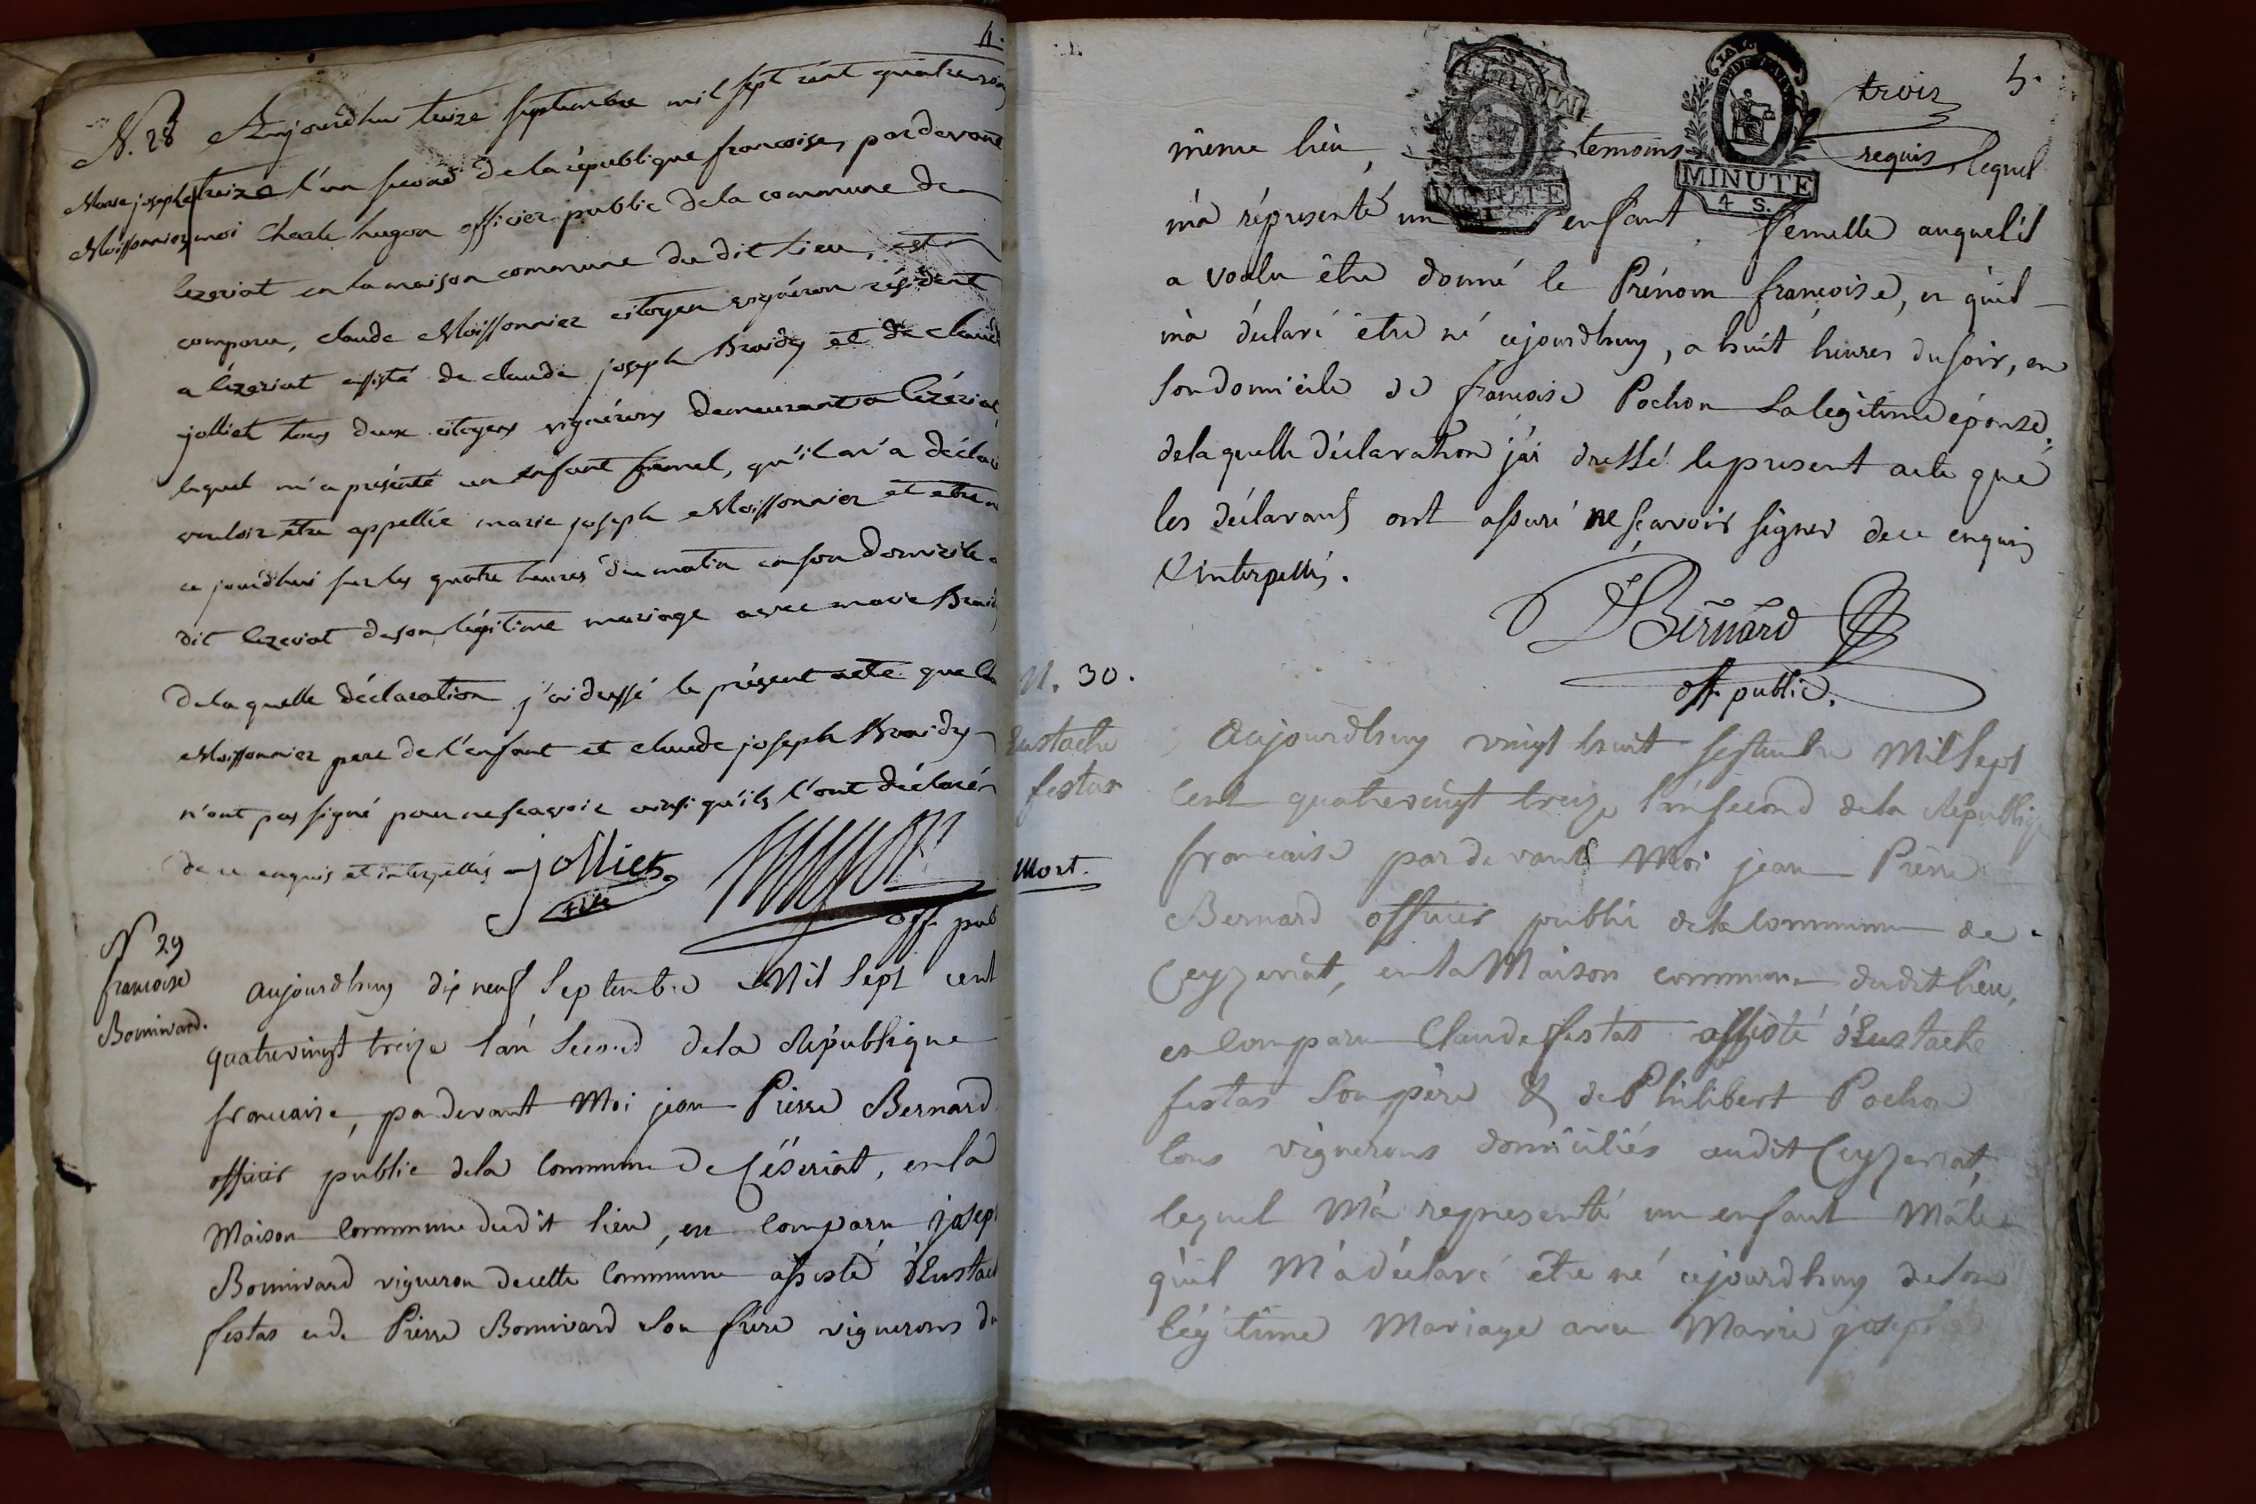 4.
N. 28
Marie joseph
Moissonnier
Aujourdhui treize septembre mil sept cent quatre vingt
treize l'an second de la république francoise, pardevant
moi Charle hugon officier public de la commune de
Cezeriat en la maison commune du dit Lieu, est
comparu, claude Moissonnier citoyen vigneron résident
a Cézeriat assisté de claude joseph Braidy et de claude
jolliet tous deux citoyens vignérons demeurant a Cézériat
lequel m'a présenté un enfant femel, qu'il m'a déclaré
vouloir être appellée marie joseph Moissonnier et etre né
ce jourdhui sur les quatre heures du matin en son domicile a
dit Cezeriat de son légitime mariage avec marie Braidy
de la quelle déclaration j'ai dressé le présent acte que
Moissonnier pere de l'enfant et claude joseph Braidy
n'ont pas signé pour ne scavoir ainsi qu'ils l'ont déclaré
de ce enquis et interpellés
jolliet
off. pub
N 29
francoise
Bonnivard.
aujourdhuy dix neuf Septembre Mil Sept cent
quatrevingt treize lan Second dela République
francaise, pardevant Moi jean Pierre Bernard
officier public dela Commune de Césériat, en la
Maison Commune dudit lieu, est Comparu joseph
Bonnivard vigneron decette Commune assisté d'Eustache
festas et de Pierre Bonnivard Son frère vignerons du
5.
MINUTE
MINUTE
4 S.
même lieu, temoins requis lequel
trois
m'a répresenté un enfant femelle auquel il
a voulu être donné le Prénom françoise, et qu'il
m'a déclaré être né cejourdhuy, a huit heures du soir, en
Son domicile de françoise Pochon Sa légitime épouse,
delaquelle déclaration j'ai dressé le present acte que
les déclarants ont assuré ne sçavoir signer de ce enquis
& interpellés.
Bernard
off. public.
N. 30.
Eustache
festas
Mort.
Aujourdhuy vingt huit septembre Mil Sept
Cent quatrevingt treize l'an Second dela République
francaise pardevant Moi jean Pierre
Bernard officier public dela Commune de
Ceyzeriat, en la Maison commune dudit lieu,
est Comparu Claude festas assisté d'Eustache
festas Son père & de Philibert Pochon
tous vignerons domiciliés audit Ceyzeriat,
lequel M'a representé un enfant Mâle
qu'il M'a déclaré être né cejourdhuy de son
légitime Mariage avec Marie joseph